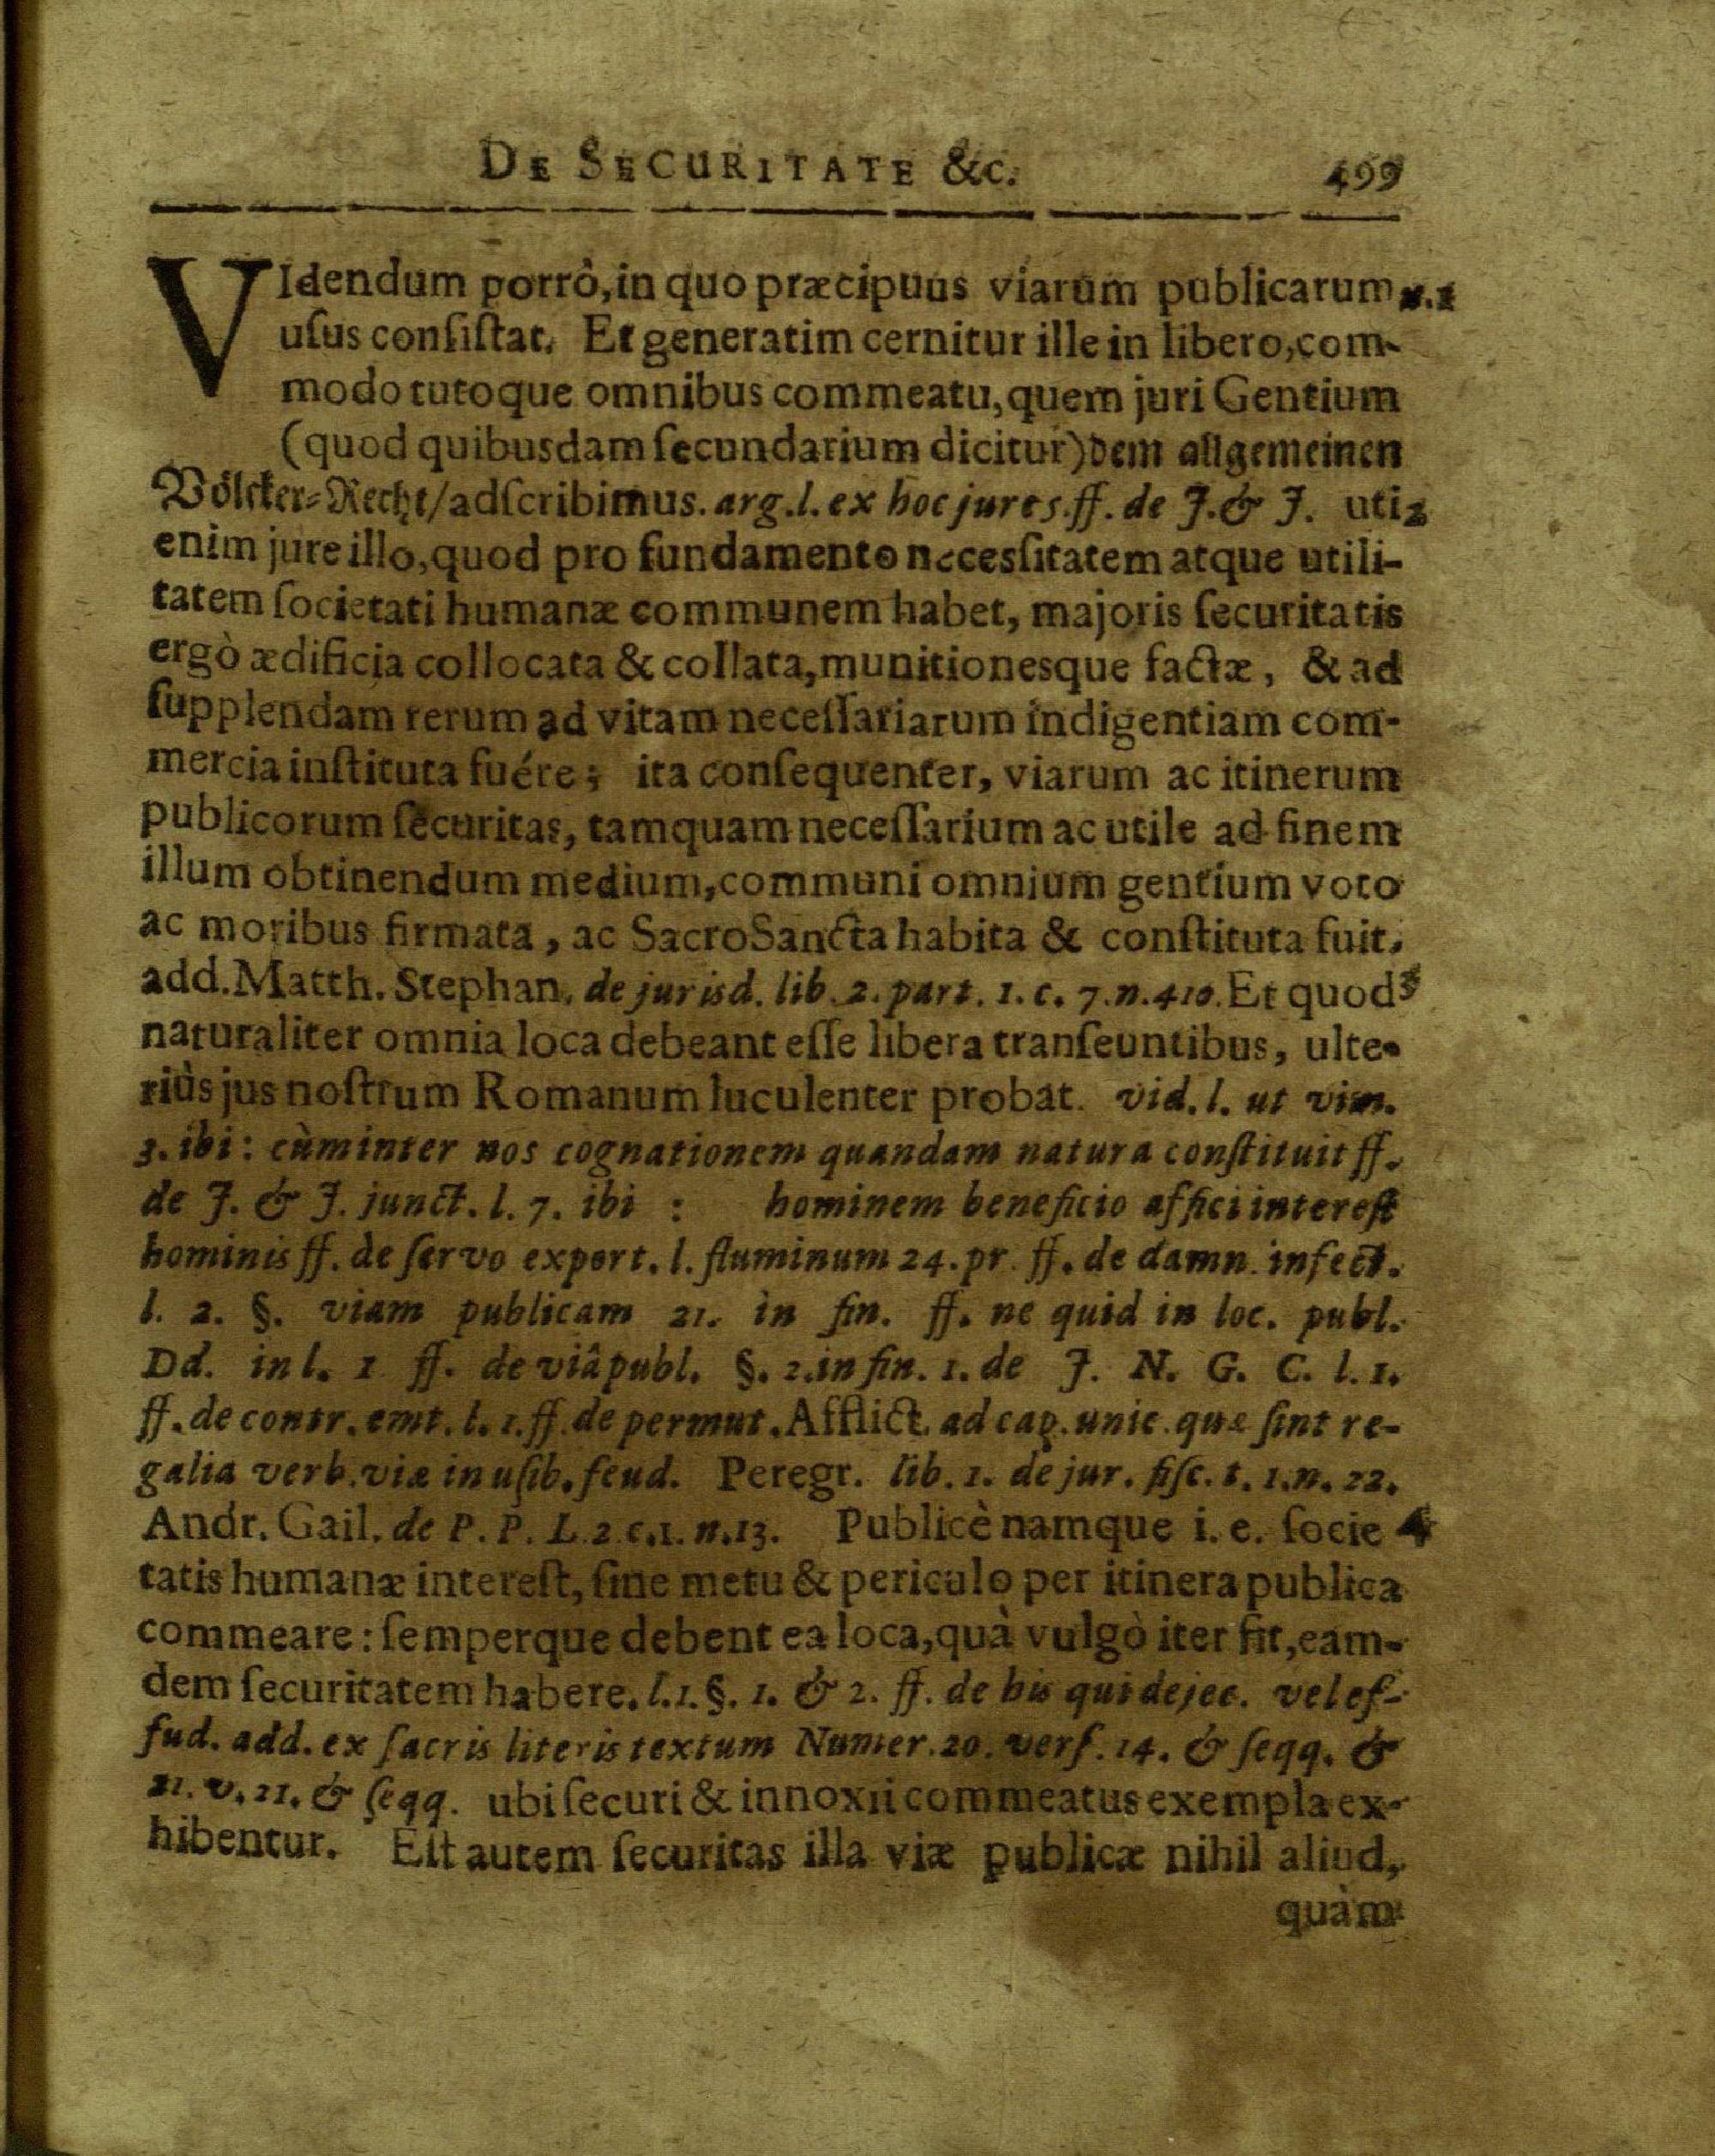 DE SECURITATE &c. 499
VIdendum porrò, in quo præcipuus viarum publicarum n. 1
uſus conſiſtat. Et generatim cernitur ille in libero, com-
modo tutoque omnibus commeatu, quem juri Gentium
(quod quibusdam ſecundarium dicitur) dem allgemeinen
Völcker-Recht/ adſcribimus. arg. l. ex hoc jure 5. ff. de J. & J. uti 2
enim jure illo, quod pro fundamento necesſitatem atque utili-
tatem ſocietati humanæ communem habet, majoris ſecuritatis
ergò ædificia collocata & collata, munitionesque factæ, & ad
ſupplendam rerum ad vitam neceſſariarum indigentiam com-
mercia inſtituta fuére; ita conſequenter, viarum ac itinerum
publicorum ſecuritas, tamquam neceſſarium ac utile ad finem
illum obtinendum medium, communi omnium gentium voto
ac moribus firmata, ac SacroSancta habita & conſtituta fuit.
add. Matth. Stephan. de jurisd. lib. 2. part. 1. c. 7. n. 410. Et quod 3
naturaliter omnia loca debeant eſſe libera tranſeuntibus, ulte-
riùs jus noſtrum Romanum luculenter probat. vid. l. ut vim.
3. ibi: cùm inter nos cognationem quandam natura conſtituit ff.
de J. & J. junct. l. 7. ibi : hominem beneficio affici intereſt
hominis ff. de ſervo export. l. fluminum 24. pr. ff. de damn. infect.
l. 2. §. viam publicam 21. in fin. ff. ne quid in loc. publ.
Dd. in l. 1 ff. de viâ publ. §. 2. in fin. 1. de J. N. G. C. l. 1.
ff. de contr. emt. l. 1. ff. de permut. Afflict. ad cap. unic. quæ ſint re-
galia verb. viæ in uſib. feud. Peregr. lib. 1. de jur. fiſc. t. 1. n. 22.
Andr. Gail. de P. P. L. 2. c. 1. n. 13. Publicè namque i. e. ſocie 4
tatis humanæ intereſt, ſine metu & periculo per itinera publica
commeare: ſemperque debent ea loca, quà vulgò iter fit, eam-
dem ſecuritatem habere. l. 1. §. 1. & 2. ff. de his qui dejec. vel ef-
fud. add. ex ſacris literis textum Numer. 20. verſ. 14. & ſeqq. &
21. v. 21. & ſeqq. ubi ſecuri & innoxii commeatus exempla ex-
hibentur. Eſt autem ſecuritas illa viæ publicæ nihil aliud,
quàm